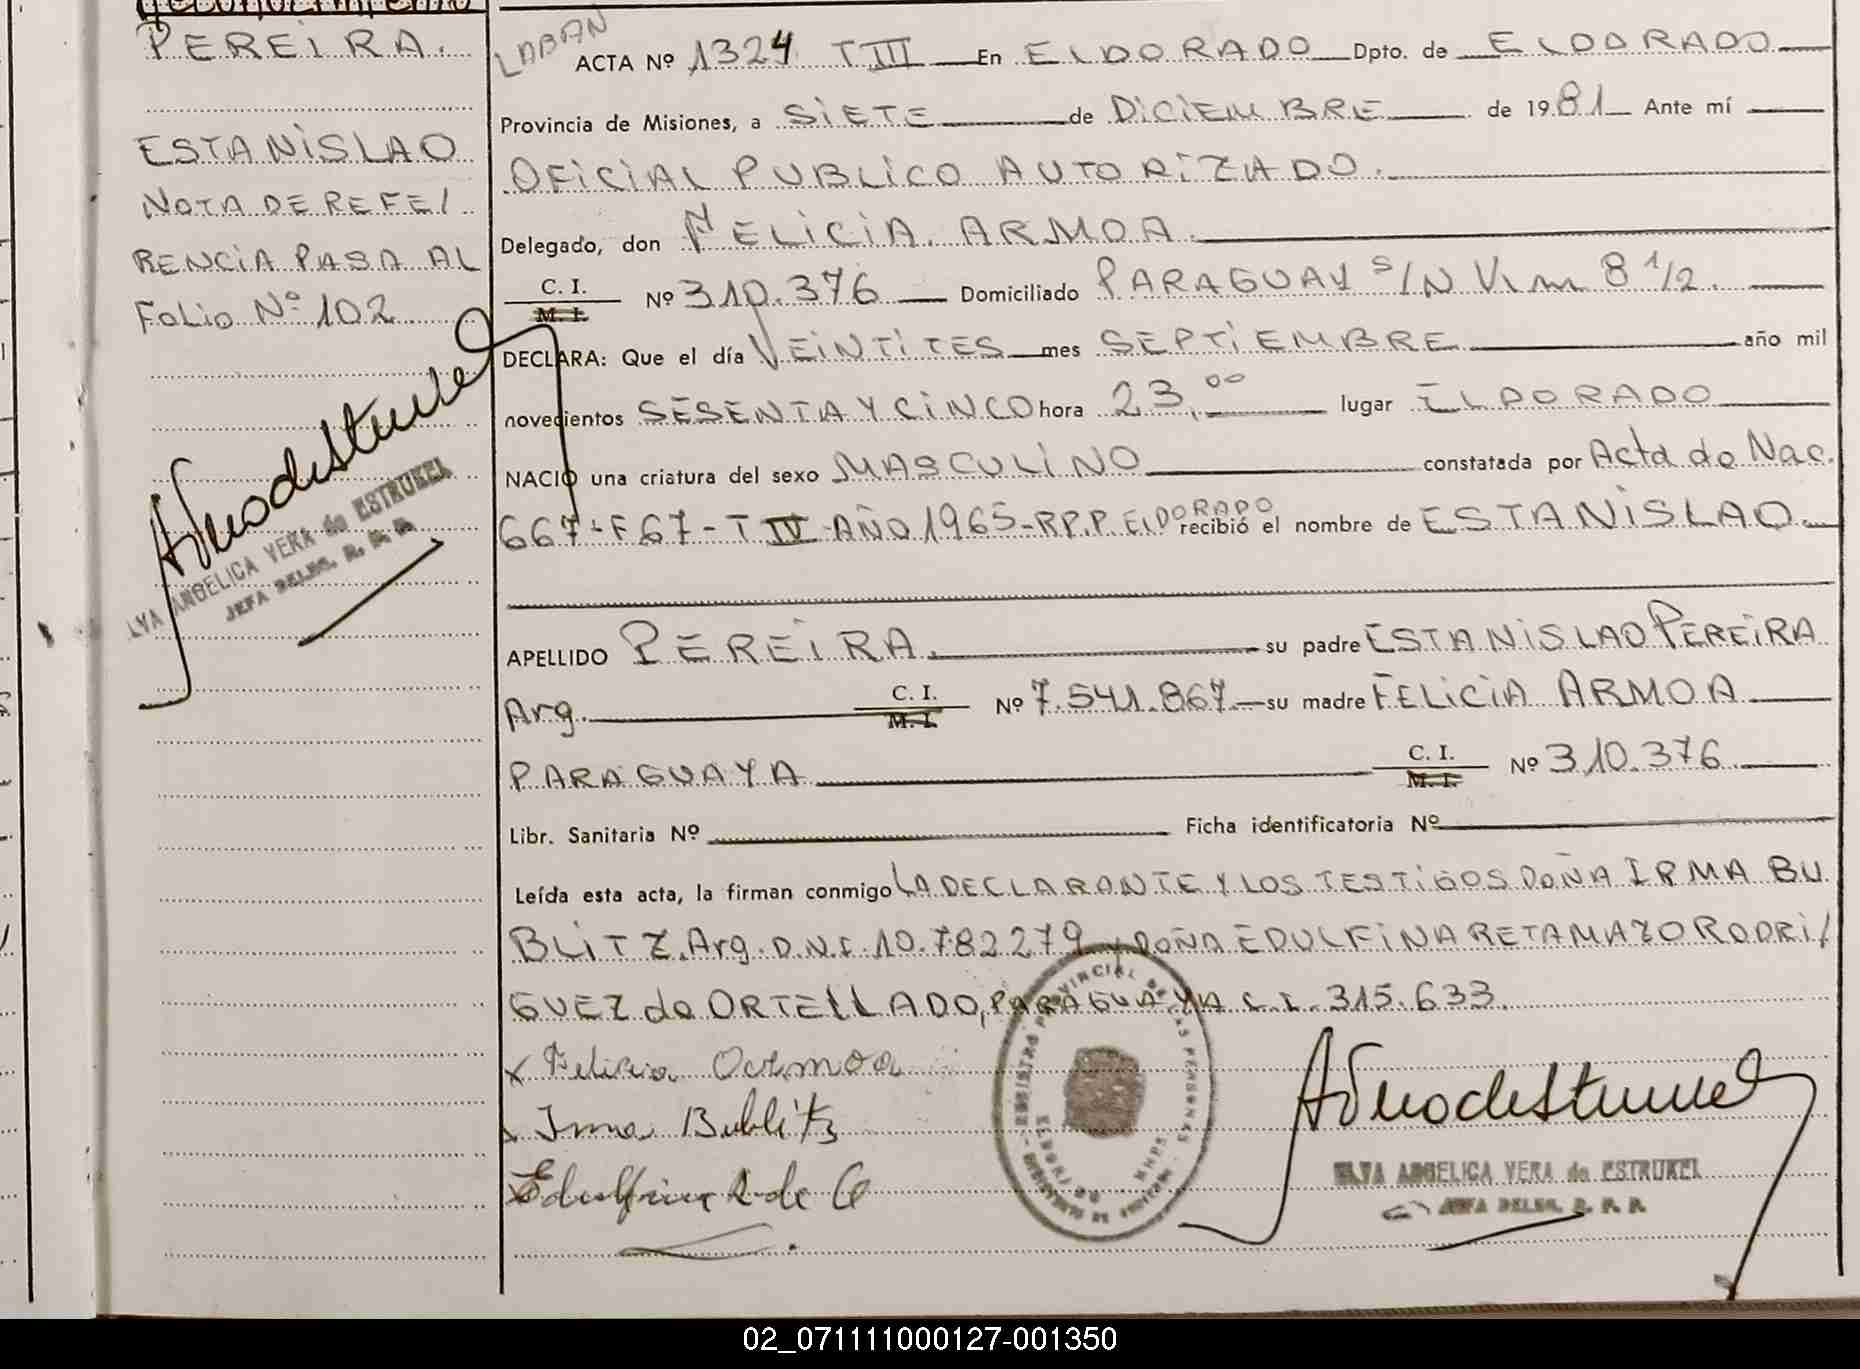 Reconocimiento
PEREIRA.
ESTANISLAO
NOTA DE REFE/
RENCIA PASA AL
FOLIO Nº 102
ELVA ANGELICA VERA de ESTRUKEL
JEFA DELEG. R. P. P.
LABAN
ACTA Nº 1324 T III En ELDORADO Dpto. de ELDORADO
Provincia de Misiones, a SIETE de DICIEMBRE de 1981 Ante mí
OFICIAL PUBLICO AUTORIZADO.
Delegado, don FELICIA ARMOA.
C. I.
M. I.
Nº 310.376 Domiciliado PARAGUAY S/N Km 8 1/2.
DECLARA: Que el día VEINTITES mes SEPTIEMBRE año mil
novecientos SESENTA Y CINCO hora 23,00 lugar ELDORADO
NACIO una criatura del sexo MASCULINO constatada por Acta de Nac.
667-F67-T IV AÑO 1965-R.P.P. ELDORADO recibió el nombre de ESTANISLAO.
APELLIDO PEREIRA. su padre ESTANISLAO PEREIRA
Arg. C. I. M. I. Nº 7.541.867 su madre FELICIA ARMOA
PARAGUAYA C. I. M. I. Nº 310.376
Libr. Sanitaria Nº Ficha identificatoria Nº
Leída esta acta, la firman conmigo LA DECLARANTE Y LOS TESTIGOS DOÑA IRMA BU
BLITZ. Arg. D.N.I. 10.782.279 y DOÑA EDULFINA RETAMAZO RODRI/
GUEZ de ORTELLADO, PARAGUAYA C.I. 315.633.
x Felicia Armoa
x Irma Bublitz
x Edulfina R de O
REGISTRO PROVINCIAL DE LAS PERSONAS
ELVA ANGELICA VERA de ESTRUKEL
JEFA DELEG. R. P. P.
02_071111000127-001350